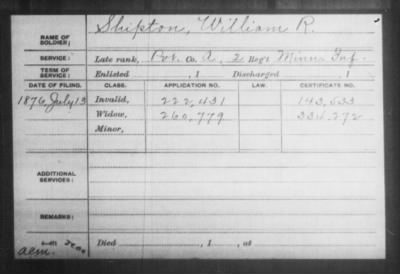 Shipton, William R.
NAME OF SOLDIER;
SERVICE: Late rank, Pvt. Co. A, 2 Reg't Minn Inf.
TERM OF SERVICE: Enlisted , 1 Discharged , 1
DATE OF FILING. CLASS. APPLICATION NO. LAW. CERTIFICATE NO.
1876, July 13 Invalid, 222,431 143,533
Widow, 260,779 334,272
Minor,
ADDITIONAL SERVICES:
REMARKS:
Died , 1 , at
aem.